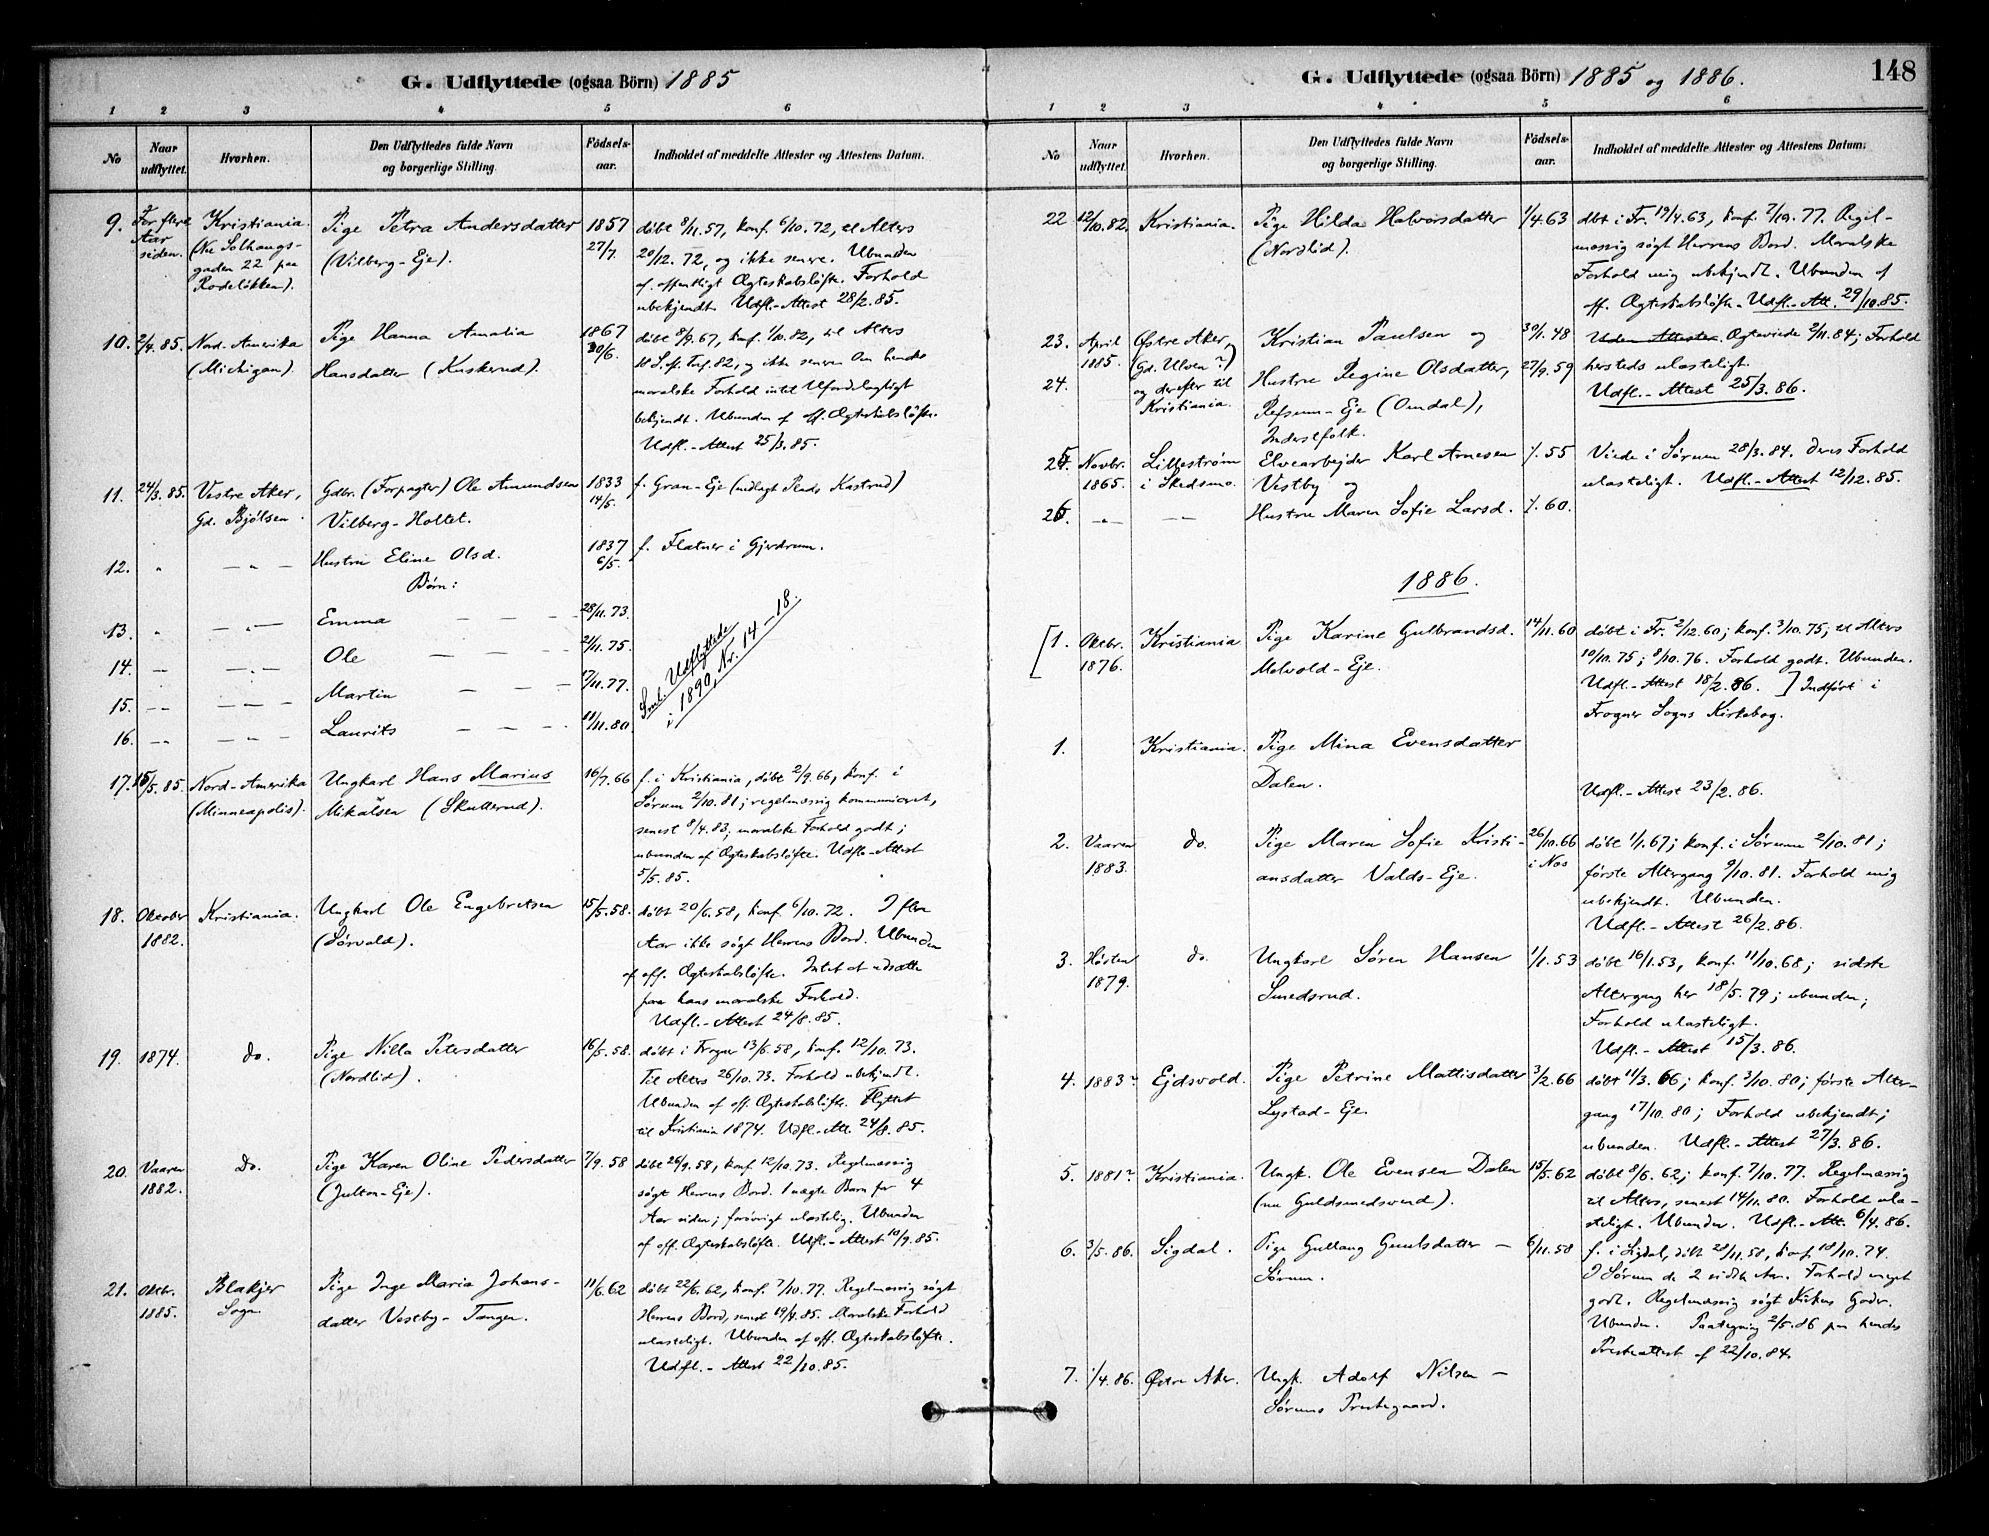 G. Udflyttede (ogsaa Börn) 1885
1 2 3 4 5 6
No
Naar udflyttet.
Hvorhen.
Den Udflyttedes fulde Navn og borgerlige Stilling.
Födsels-aar.
Indholdet af meddelte Attester og Attestens Datum.
9. For flere Aar siden. Kristiania. (Nu Solhaugs-gaden 22 paa Rodeløkken).
Pige Petra Andersdatter (Vilberg-Eje).
1857 27/7.
døbt 8/11.57, konf. 6/10.72, til Alters
20/12.72, og ikke senere. Ubunden
af offentligt Ægteskabsløfte. Forhold
ubekjendt. Udfl.-Attest 28/2.85.
10. 2/4.85. Nord-Amerika (Michigan).
Pige Hanna Amalia
Hansdatter (Kuskerud).
1867 30/6.
døbt 8/9.67, konf. 1/10.82, til Alters
og ikke senere. Om hendes
moralske Forhold intet Ufordelagtigt
bekjendt. Ubunden af off. Ægteskabsløfte.
Udfl.-Attest 25/3.85.
11. 24/3.85. Vestre Aker, Gd. Bjølsen.
Gdbr. (Forpagter) Ole Amundsen
Vilberg-Holtet.
1833 14/5.
f. Gran-Eje (nedlagt Plads Kastrud)
12. " — " —
Hustru Eline Olsd.
1837 6/5.
f. Flatner i Gjerdrum.
Børn:
13. " — " — Emma — — — 28/11.73.
14. — — " — Ole — — — 21/11.75.
15. — — — " — Martin — — — 17/11.77.
16. — — — " — Laurits — — — 11/11.80
Sml. Udflyttede
i 1890, Nr. 14–18.
17. 15/5.85. Nord-Amerika (Minneapolis).
Ungkarl Hans Marius
Mikalsen (Skutterud).
16/7.66
f. i Kristiania, døbt 2/9.66, konf. i
Sørum 2/10.81; regelmæssig kommuniceret,
senest 8/4.83; moralske Forhold godt;
ubunden af Ægteskabsløfte. Udfl.-Attest
5/5.85.
18. Oktober 1882. Kristiania.
Ungkarl Ole Engebretsen
(Sørvald).
15/5.58.
døbt 20/6.58, konf. 6/10.72. I flere
Aar ikke søgt Herrens Bord. Ubunden
af off. Ægteskabsløfte. Intet at udsætte
paa hans moralske Forhold.
Udfl.-Attest 24/8.85.
19. 1874. Do.
Pige Nilla Petersdatter
(Nordlid).
16/5.58.
døbt i Frogner 13/6.58, konf. 12/10.73.
Til Alters 26/10.73. Forhold ubekjendt.
Ubunden af off. Ægteskabsløfte. Flyttet
til Kristiania 1874. Udfl.-Att. 24/8.85.
20. Vaaren 1882. Do.
Pige Karen Oline Pedersdatter
(Julton-Eje).
7/9.58
døbt 26/9.58, konf. 12/10.73. Regelmæssig
søgt Herrens Bord. 1 uægte Barn for 4
Aar siden; forøvrigt ulastelig. Ubunden
af off. Ægteskabsløfte. Udfl.-Attest 10/9.85.
21. Oktbr. 1885. Blakjer Sogn.
Pige Inge Maria Johans-
datter Vestby-Tangen.
11/6.62
døbt 22/6.62, konf. 7/10.77. Regelmæssig søgt
Herrens Bord, senest 19/4.85. Moralske Forhold
ulasteligt. Ubunden af off. Ægteskabsløfte.
Udfl.-Attest 22/10.85.
G. Udflyttede (ogsaa Börn) 1885 og 1886.
148
1 2 3 4 5 6
No
Naar udflyttet.
Hvorhen.
Den Udflyttedes fulde Navn og borgerlige Stilling.
Födsels-aar.
Indholdet af meddelte Attester og Attestens Datum.
22 12/10.82. Kristiania.
Pige Hilda Halvorsdatter
(Nordlid).
1/4.63
dbt i Fr. 19/4.63, konf. 7/10.77. Regel-
mæssig søgt Herrens Bord. Moralske
Forhold mig ubekjendt. Ubunden af
off. Ægteskabsløfte. Udfl.-Att. 29/10.85.
23. April 1885. Østre Aker, (Gd. Ulven?) og derefter til Kristiania.
Kristian Paulsen og
30/1.48
Uden Attester. Ægteviede 2/11.84; Forhold
24. Hustru Regine Olsdatter,
27/9.59
hersteds ulasteligt.
Refsum-Eje (Omdal),
Udfl.-Attest 25/3.86.
Inderstfolk.
25. Novbr. 1865. Lillestrøm i Skedsmo.
Elvearbejder Karl Arnesen
Vestby og
55
Viede i Sørum 28/3.84. deres Forhold
ulasteligt. Udfl.-Attest 12/12.85.
26. — " — — —
Hustru Maren Sofie Larsd.
60.
1886.
[1. Oktbr. 1876. Kristiania
Pige Karine Gulbrandsd.
Melvold-Eje.
14/11.60
døbt i Fr. 2/12.60; konf. 3/10.75; til Alters
10/10.75; 8/10.76. Forhold godt. Ubunden.
Udfl.-Attest 18/2.86. ] Indført i
Frogner Sogns Kirkebog.
1. Kristiania.
Pige Mina Evensdatter
Dalen.
Udfl.-Attest 23/2.86.
2. Vaaren 1883. Do.
Pige Maren Sofie Kristi-
ansdatter Valds-Eje.
26/10.66 i Nes
døbt 1/1.67; konf. i Sørum 2/10.81;
første Altergang 9/10.81. Forhold mig
ubekjendt. Ubunden.
Udfl.-Attest 26/2.86.
3. Høsten 1879. Do.
Ungkarl Søren Hansen
Smedsrud.
1/1.53
døbt 16/1.53, konf. 11/10.68; sidste
Altergang her 18/5.79; ubunden;
Forhold ulasteligt.
Udfl.-Attest 15/3.86.
4. 1883? Ejdsvold.
Pige Petrine Mattisdatter
Lystad-Eje.
3/2.66
døbt 11/3.66; konf. 3/10.80; første Alter-
gang 17/10.80; Forhold ubekjendt;
ubunden. Udfl.-Attest 27/3.86.
5. 1881? Kristiania.
Ungk. Ole Evensen Dalen
(nu Guldsmedsvend).
15/5.62
døbt 8/6.62; konf. 7/10.77. Regelmæssig
til Alters, senest 14/11.80. Forhold ula-
steligt. Ubunden. Udfl.-Att. 6/4.86.
6. 3/5.86. Sigdal.
Pige Gullaug Gundsdatter —
Sørum.
6/11.58
f. i Sigdal, døbt 28/11.58, konf. 18/10.74.
I Sørum de 2 sidste Aar. Forhold meget
godt. Regelmæssig søgt Kirkens Goder.
Ubunden. Paategning 2/5.86 paa hendes
Presteattest af 22/10.84.
7. 1/4.86. Østre Aker.
Ungk. Adolf Nilsen —
Sørums Prestegaard.